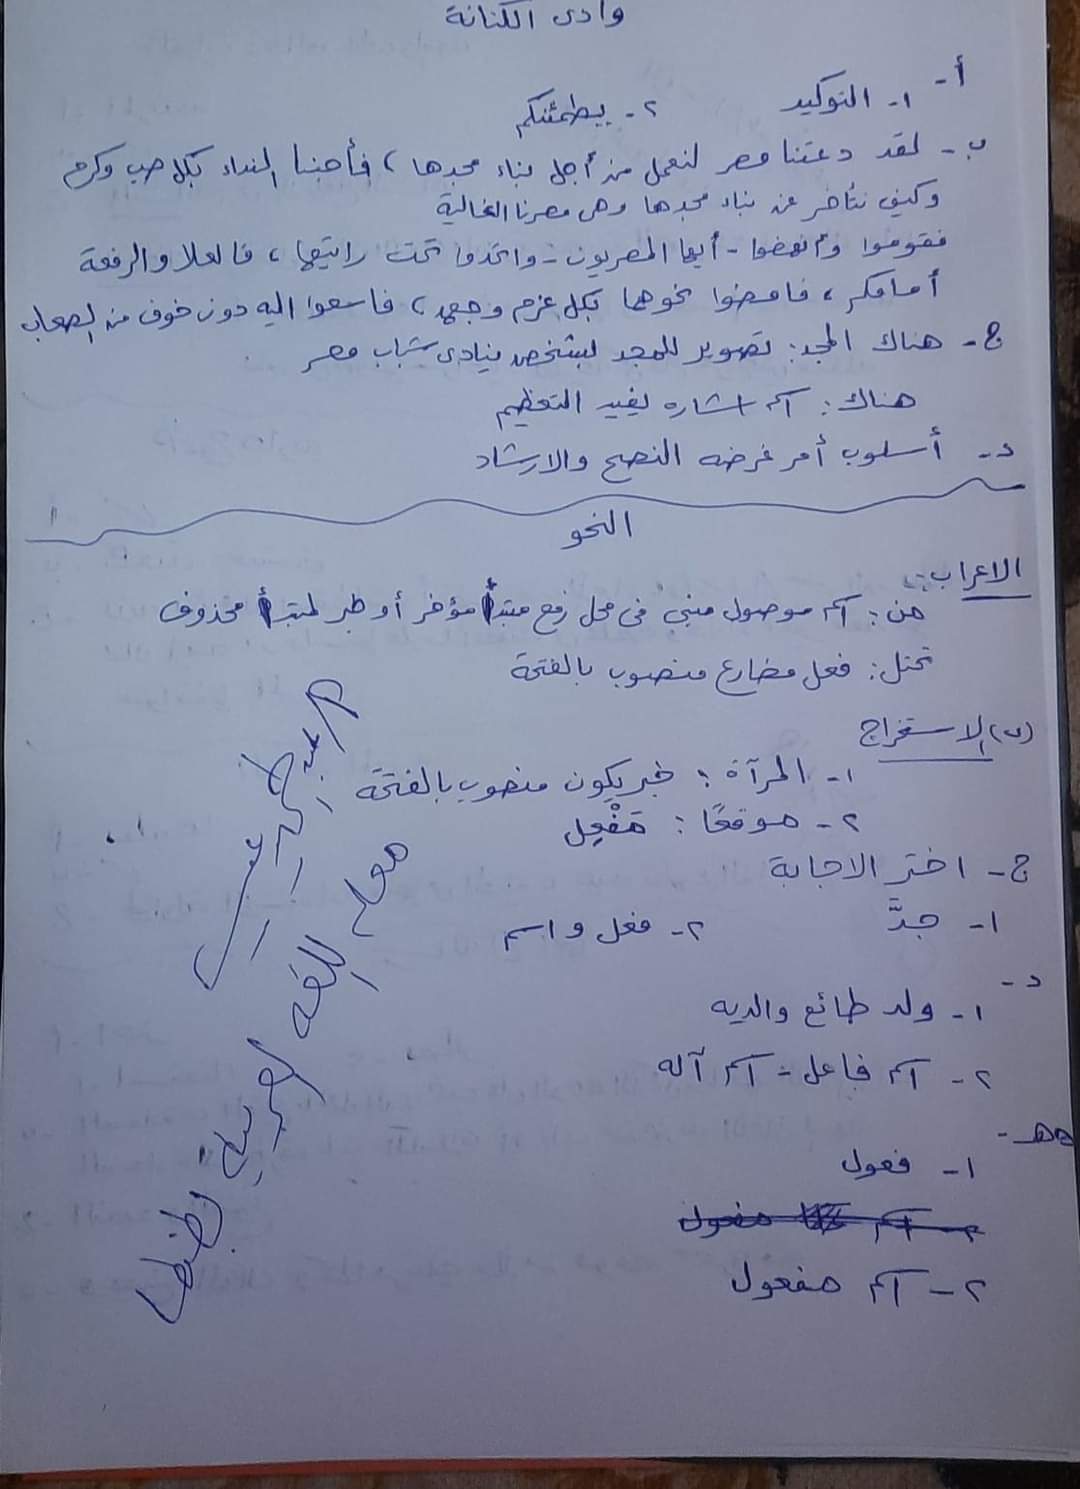 وادى الكنانة
أ-
١- التوكيد ٢- يطمئنكم
ب- لقد دعتنا مصر لنعمل من أجل بناء مجدها، فأجبنا النداء بكل حب وكرم
وكيف نتأخر عن بناء مجدها وهى مصرنا الغالية
فقوموا وانهضوا - أيها المصريون - واتحدوا تحت رايتها، فالعلا والرفعة
أمامكم، فامضوا نحوها بكل عزم وجهد، فاسعوا اليه دون خوف من الصعاب
ج- هناك المجد: تصوير للمجد بشخص ينادى شباب مصر
هناك: اسم اشاره يفيد التعظيم
د- أسلوب أمر غرضه النصح والارشاد
النحو
الاعراب:
من: اسم موصول مبنى فى محل رفع مبتدأ مؤخر أو خبر لمبتدأ محذوف
تحتل: فعل مضارع منصوب بالفتحة
(ب) الاستخراج
١- المرآة: خبر يكون منصوب بالفتحة
٢- موقعًا: مَفْعِل
ج- اختر الاجابة
١- جدَّ ٢- فعل واسم
د-
١- ولد طائع والديه
٢- اسم فاعل - اسم آله
هـ-
١- فعول
٢- اسم مفعول
٢- اسم مفعول
معلم اللغه العربيه